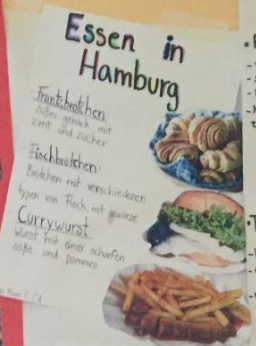 Essen in
Hamburg
Frantzbrötchen:
süßes gebäck mit
zimt und zucker
Fischbrötchen:
Brötchen mit verschiedenen
typen von Fisch, mit gewürze
Currywurst
wurst mit einer scharfen
soße und pommes